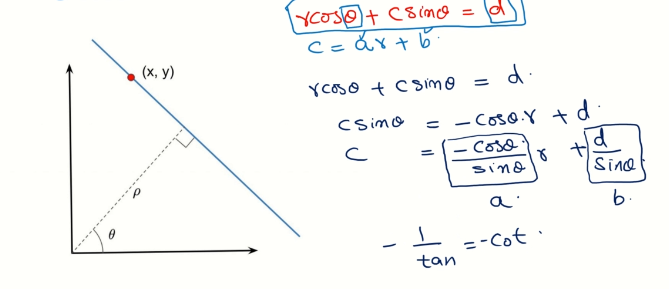 rcosθ + csinθ = d
c = ar + b
(x, y)
rcosθ + csinθ = d.
csinθ = -cosθ.r + d.
c = -cosθ. / sinθ r + d / sinθ.
a. b.
ρ
θ
- 1 / tan = -cot.